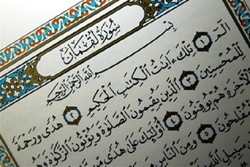 سُورَةُ لُقْمَانَ
بِسْمِ اللَّهِ الرَّحْمَٰنِ الرَّحِيمِ
الٓمٓ ١ تِلْكَ ءَايَٰتُ الْكِتَٰبِ الْحَكِيمِ ٢ هُدًى وَرَحْمَةً
لِّلْمُحْسِنِينَ ٣ الَّذِينَ يُقِيمُونَ الصَّلَوٰةَ وَيُؤْتُونَ الزَّكَوٰةَ وَهُم
هُمْ يُوقِنُونَ ٤ أُو۟لَٰٓئِكَ عَلَىٰ هُدًى